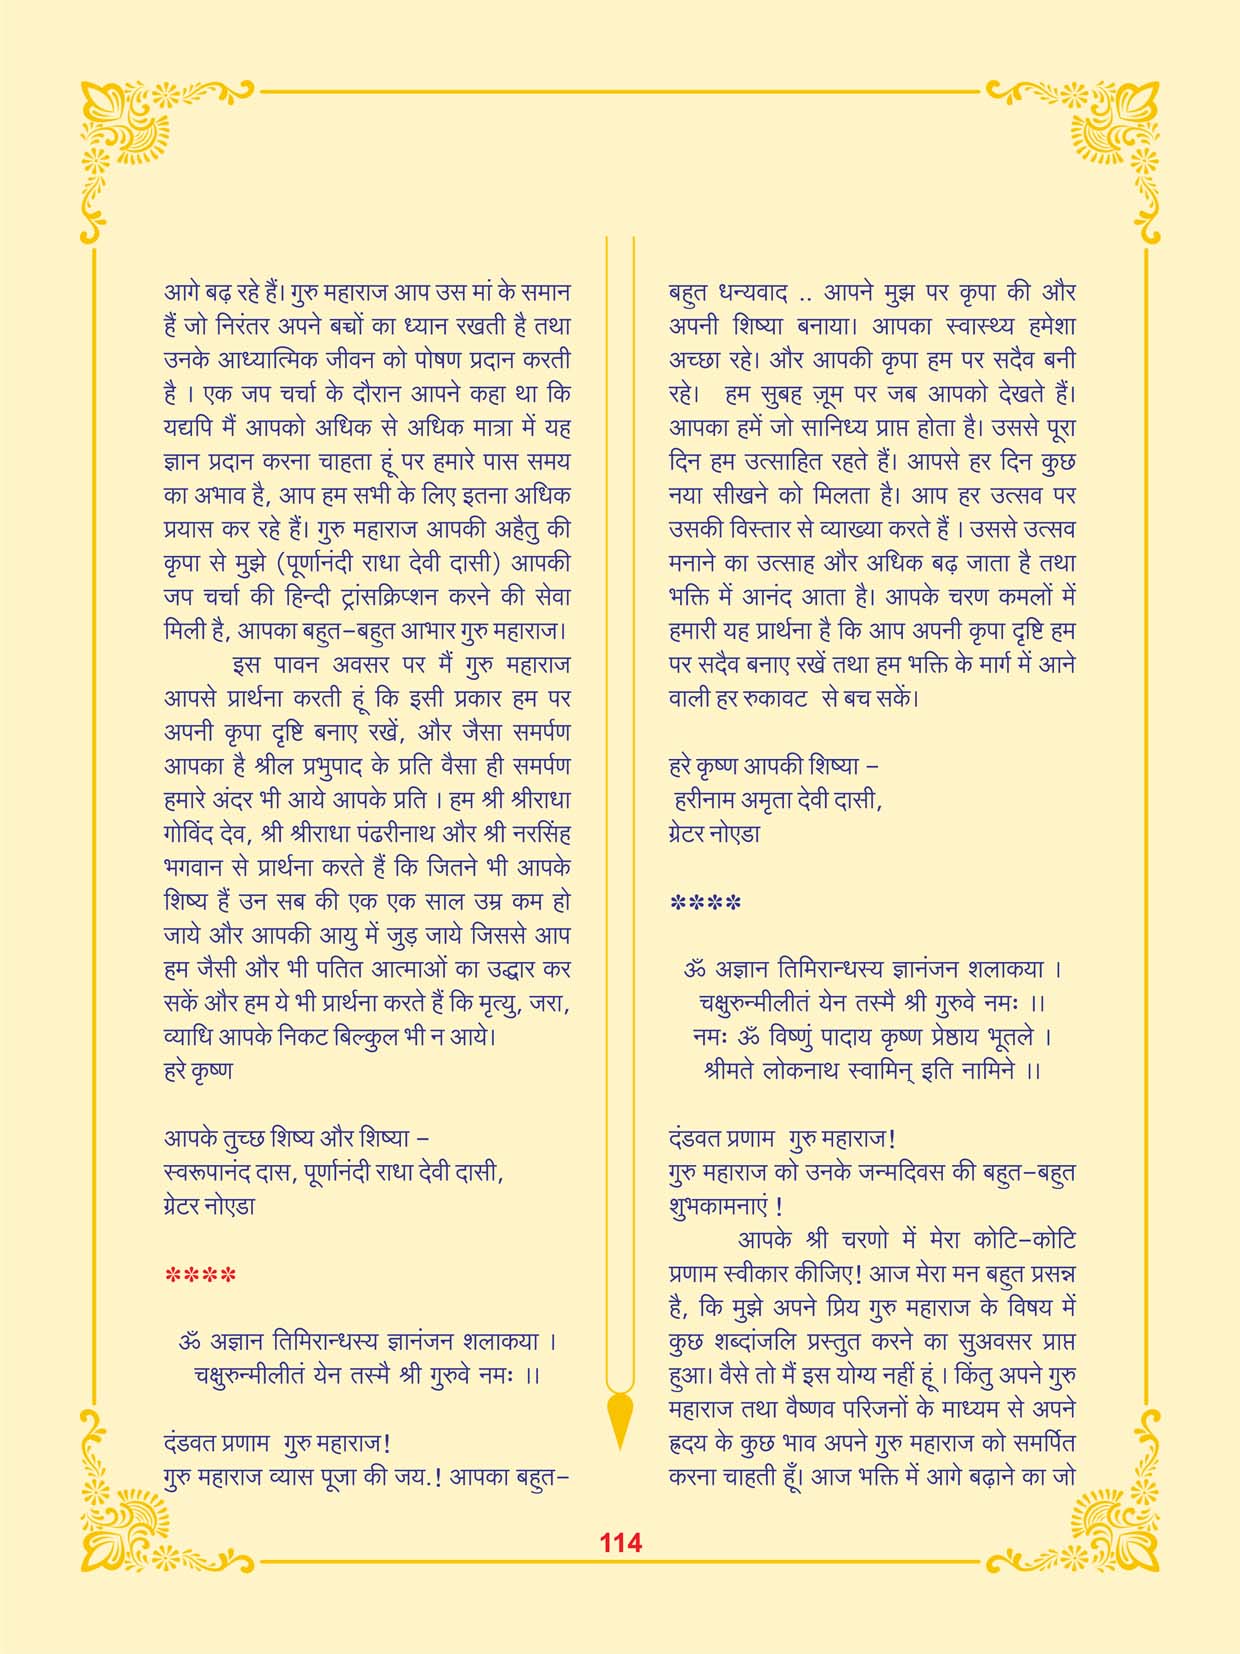 आगे बढ़ रहे हैं। गुरु महाराज आप उस मां के समान
हैं जो निरंतर अपने बच्चों का ध्यान रखती है तथा
उनके आध्यात्मिक जीवन को पोषण प्रदान करती
है । एक जप चर्चा के दौरान आपने कहा था कि
यद्यपि मैं आपको अधिक से अधिक मात्रा में यह
ज्ञान प्रदान करना चाहता हूं पर हमारे पास समय
का अभाव है, आप हम सभी के लिए इतना अधिक
प्रयास कर रहे हैं। गुरु महाराज आपकी अहैतु की
कृपा से मुझे (पूर्णानंदी राधा देवी दासी) आपकी
जप चर्चा की हिन्दी ट्रांसक्रिप्शन करने की सेवा
मिली है, आपका बहुत-बहुत आभार गुरु महाराज।
इस पावन अवसर पर मैं गुरु महाराज
आपसे प्रार्थना करती हूं कि इसी प्रकार हम पर
अपनी कृपा दृष्टि बनाए रखें, और जैसा समर्पण
आपका है श्रील प्रभुपाद के प्रति वैसा ही समर्पण
हमारे अंदर भी आये आपके प्रति । हम श्री श्रीराधा
गोविंद देव, श्री श्रीराधा पंढरीनाथ और श्री नरसिंह
भगवान से प्रार्थना करते हैं कि जितने भी आपके
शिष्य हैं उन सब की एक एक साल उम्र कम हो
जाये और आपकी आयु में जुड़ जाये जिससे आप
हम जैसी और भी पतित आत्माओं का उद्धार कर
सकें और हम ये भी प्रार्थना करते हैं कि मृत्यु, जरा,
व्याधि आपके निकट बिल्कुल भी न आये।
हरे कृष्ण
आपके तुच्छ शिष्य और शिष्या -
स्वरूपानंद दास, पूर्णानंदी राधा देवी दासी,
ग्रेटर नोएडा
****
ॐ अज्ञान तिमिरान्धस्य ज्ञानंजन शलाकया ।
चक्षुरुन्मीलीतं येन तस्मै श्री गुरुवे नमः ।।
दंडवत प्रणाम गुरु महाराज!
गुरु महाराज व्यास पूजा की जय.! आपका बहुत-
बहुत धन्यवाद .. आपने मुझ पर कृपा की और
अपनी शिष्या बनाया। आपका स्वास्थ्य हमेशा
अच्छा रहे। और आपकी कृपा हम पर सदैव बनी
रहे। हम सुबह ज़ूम पर जब आपको देखते हैं।
आपका हमें जो सानिध्य प्राप्त होता है। उससे पूरा
दिन हम उत्साहित रहते हैं। आपसे हर दिन कुछ
नया सीखने को मिलता है। आप हर उत्सव पर
उसकी विस्तार से व्याख्या करते हैं । उससे उत्सव
मनाने का उत्साह और अधिक बढ़ जाता है तथा
भक्ति में आनंद आता है। आपके चरण कमलों में
हमारी यह प्रार्थना है कि आप अपनी कृपा दृष्टि हम
पर सदैव बनाए रखें तथा हम भक्ति के मार्ग में आने
वाली हर रुकावट से बच सकें।
हरे कृष्ण आपकी शिष्या -
हरीनाम अमृता देवी दासी,
ग्रेटर नोएडा
****
ॐ अज्ञान तिमिरान्धस्य ज्ञानंजन शलाकया ।
चक्षुरुन्मीलीतं येन तस्मै श्री गुरुवे नमः ।।
नमः ॐ विष्णुं पादाय कृष्ण प्रेष्ठाय भूतले ।
श्रीमते लोकनाथ स्वामिन् इति नामिने ।।
दंडवत प्रणाम गुरु महाराज!
गुरु महाराज को उनके जन्मदिवस की बहुत-बहुत
शुभकामनाएं !
आपके श्री चरणो में मेरा कोटि-कोटि
प्रणाम स्वीकार कीजिए! आज मेरा मन बहुत प्रसन्न
है, कि मुझे अपने प्रिय गुरु महाराज के विषय में
कुछ शब्दांजलि प्रस्तुत करने का सुअवसर प्राप्त
हुआ। वैसे तो मैं इस योग्य नहीं हूं । किंतु अपने गुरु
महाराज तथा वैष्णव परिजनों के माध्यम से अपने
ह्रदय के कुछ भाव अपने गुरु महाराज को समर्पित
करना चाहती हूँ। आज भक्ति में आगे बढ़ाने का जो
114